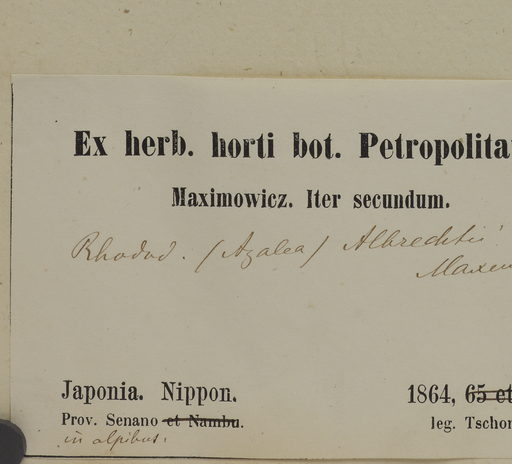 Ex herb. horti bot. Petropolita
Maximowicz. Iter secundum.
Rhodod. (Azalea) Albrechtii
Maxim
Japonia. Nippon.
1864, 65 et
Prov. Senano et Nambu.
leg. Tschor
in alpibus.